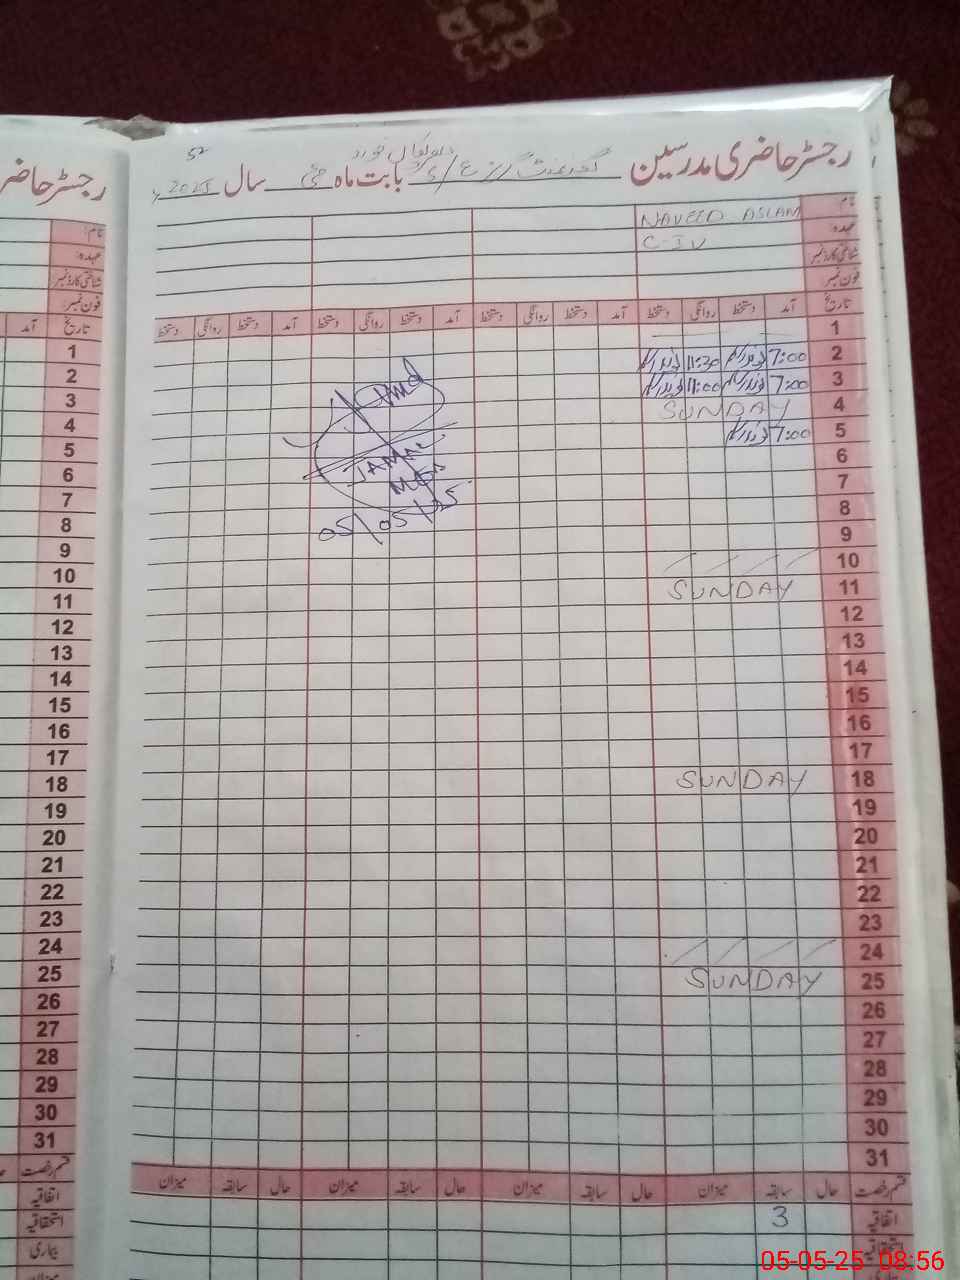 رجسٹر حاضری مدرسین گورنمنٹ بابت ماہ مئی سال 2025ء
52
رجسٹر حاضر
نام: NAVEED ASLAM
عہدہ: C-IV
شناختی کارڈ نمبر
فون نمبر:
تاریخ آمد دستخط روانگی دستخط آمد دستخط روانگی دستخط آمد دستخط روانگی دستخط آمد دستخط روانگی دستخط
1
2 7:00 11:30
3 7:00 11:00
4 SUNDAY
5 7:00
6
7
8
9
10
11 SUNDAY
12
13
14
15
16
17
18 SUNDAY
19
20
21
22
23
24
25 SUNDAY
26
27
28
29
30
31
05/05/25
قسم رخصت حال سابقہ میزان حال سابقہ میزان حال سابقہ میزان حال سابقہ میزان
اتفاقیہ 3
استحقاقیہ
بیماری
نام:
عہدہ:
شناختی کارڈ نمبر
فون نمبر:
تاریخ آمد
1
2
3
4
5
6
7
8
9
10
11
12
13
14
15
16
17
18
19
20
21
22
23
24
25
26
27
28
29
30
31
قسم رخصت
اتفاقیہ
استحقاقیہ
بیماری
میزان
05-05-25 08:56